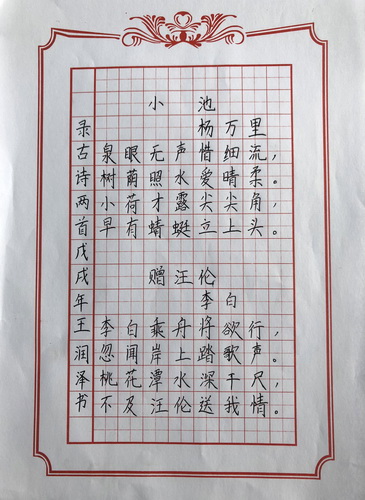 小池
杨万里
泉眼无声惜细流，
树荫照水爱晴柔。
小荷才露尖尖角，
早有蜻蜓立上头。
赠汪伦
李白
李白乘舟将欲行，
忽闻岸上踏歌声。
桃花潭水深千尺，
不及汪伦送我情。
录古诗两首戊戌年王润泽书